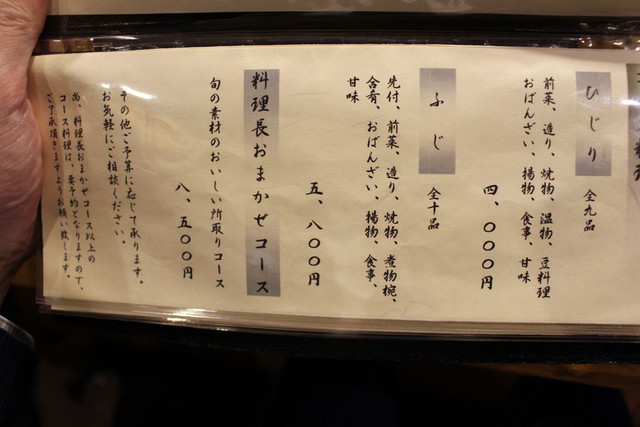 ひじり 全九品
前菜、造り、焼物、温物、豆料理
おばんざい、揚物、食事、甘味
四、〇〇〇円
ふじ 全十品
先付、前菜、造り、焼物、煮物椀、
合肴、おばんざい、揚物、食事、
甘味
五、八〇〇円
料理長おまかせコース
旬の素材のおいしい所取りコース
八、五〇〇円
その他ご予算に応じて承ります。
お気軽にご相談ください。
尚、料理長おまかせコース以上の
コース料理は、要予約となりますので、
ご了承頂きますようお願い致します。